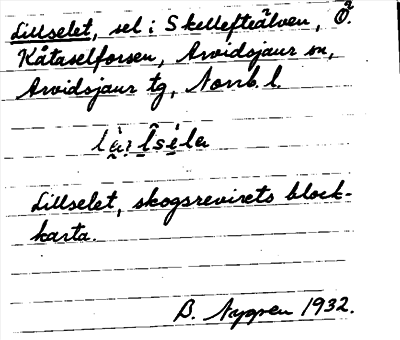 Lillselet, sel i Skellefteälven, Ö.
Kåtaselforsen, Arvidsjaur sn,
Arvidsjaur tg, Norrb. l.
Lillselet, skogsrevirets block-
karta.
B. Nygren 1932.